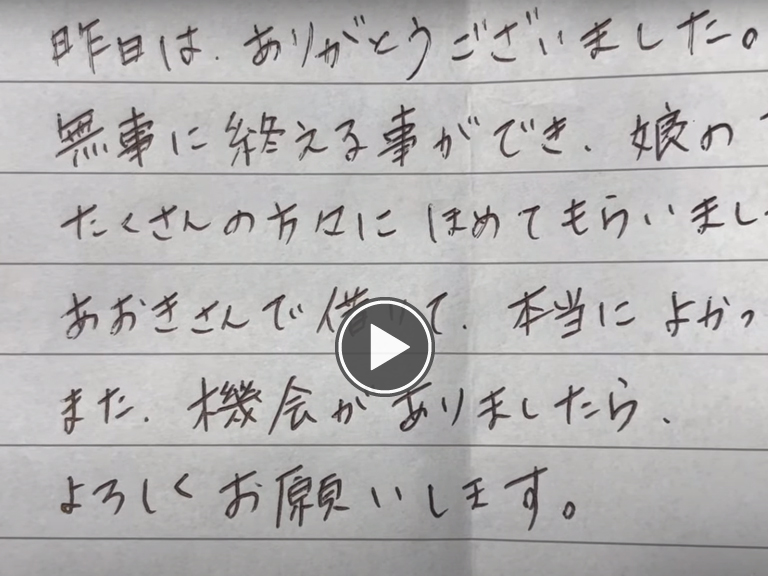 昨日は、ありがとうございました。
無事に終える事ができ、娘の
たくさんの方々に ほめてもらいまし
あおきさんで 借りて、本当に よかっ
また、機会が ありましたら、
よろしく お願いします。